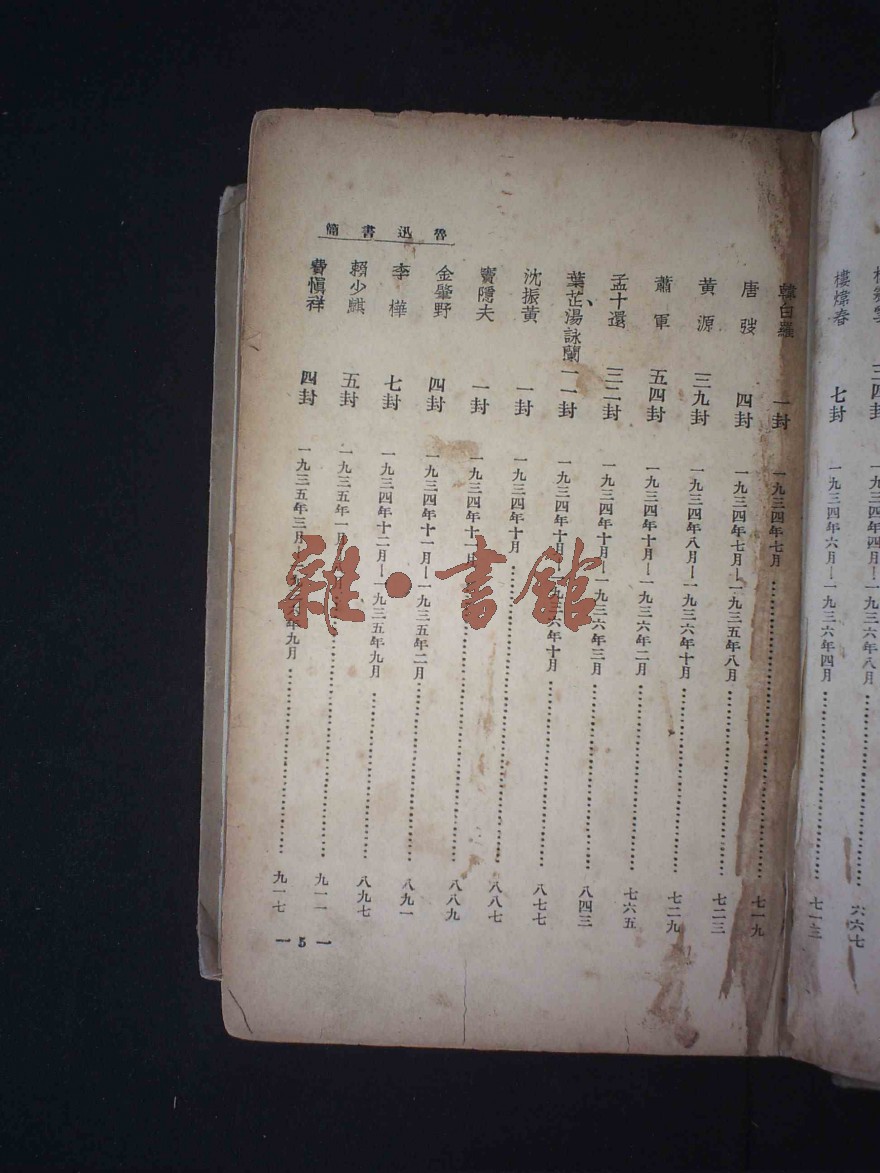 三四封 一九三四年四月—一九三六年八月 六六七
樓煒春 七封 一九三四年六月—一九三六年四月……七一三
魯迅書簡
韓白羅 一封 一九三四年七月……七一九
唐弢 四封 一九三四年七月—一九三五年八月……七二三
黃源 三九封 一九三四年八月—一九三六年十月……七二九
蕭軍 五四封 一九三四年十月—一九三六年二月……七六五
孟十還 三二封 一九三四年十月—一九三六年三月……八四三
葉芷、湯詠蘭 一一封 一九三四年十月—一九三六年十月……八七七
沈振黃 一封 一九三四年十月……八八七
竇隱夫 一封 一九三四年十一月……八八九
金肇野 四封 一九三四年十一月—一九三五年二月……八九一
李樺 七封 一九三四年十二月—一九三五年九月……八九七
賴少麒 五封 一九三五年一月 八月……九一一
費慎祥 四封 一九三五年三月— 六年九月……九一七
— 5 —
雜·書館